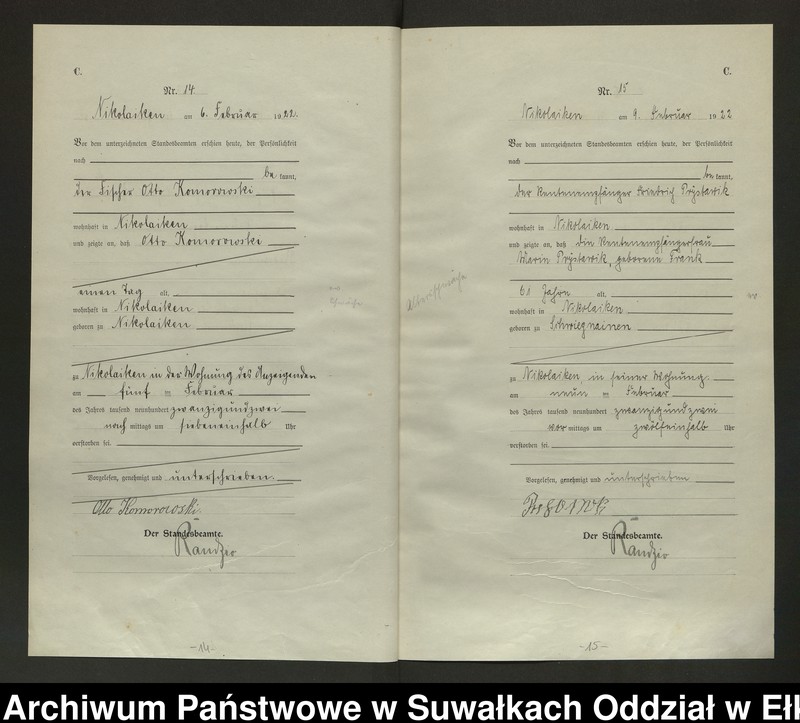 C.
Nr. 14.
Nikolaiken am 6. Februar 1922.
Vor dem unterzeichneten Standesbeamten erschien heute, der Persönlichkeit
nach
be kannt,
der Fischer Otto Komorowski
wohnhaft in Nikolaiken
und zeigte an, daß Otto Komorowski
einen Tag alt,
wohnhaft in Nikolaiken
geboren zu Nikolaiken
zu Nikolaiken in der Wohnung des Anzeigenden
am fünf ten Februar
des Jahres tausend neunhundert zwanzigundzwei
nach mittags um siebeneinhalb Uhr
verstorben sei.
Vorgelesen, genehmigt und unterschrieben.
Otto Komorowski.
Der Standesbeamte.
Randzio
-14-
C.
Nr. 15
Nikolaiken am 9. Februar 1922
Vor dem unterzeichneten Standesbeamten erschien heute, der Persönlichkeit
nach
be kannt,
der Rentenempfänger Friedrich Prystawik
wohnhaft in Nikolaiken
und zeigte an, daß die Rentenempfängerfrau
Marie Prystawik, geborene Frank
61 Jahre alt,
wohnhaft in Nikolaiken
geboren zu Schwiegnainen
zu Nikolaiken, in seiner Wohnung
am neun ten Februar
des Jahres tausend neunhundert zwanzigundzwei
vor mittags um zwölfeinhalb Uhr
verstorben sei.
Vorgelesen, genehmigt und unterschrieben
Der Standesbeamte.
Randzio
-15-
Archiwum Państwowe w Suwałkach Oddział w Eł